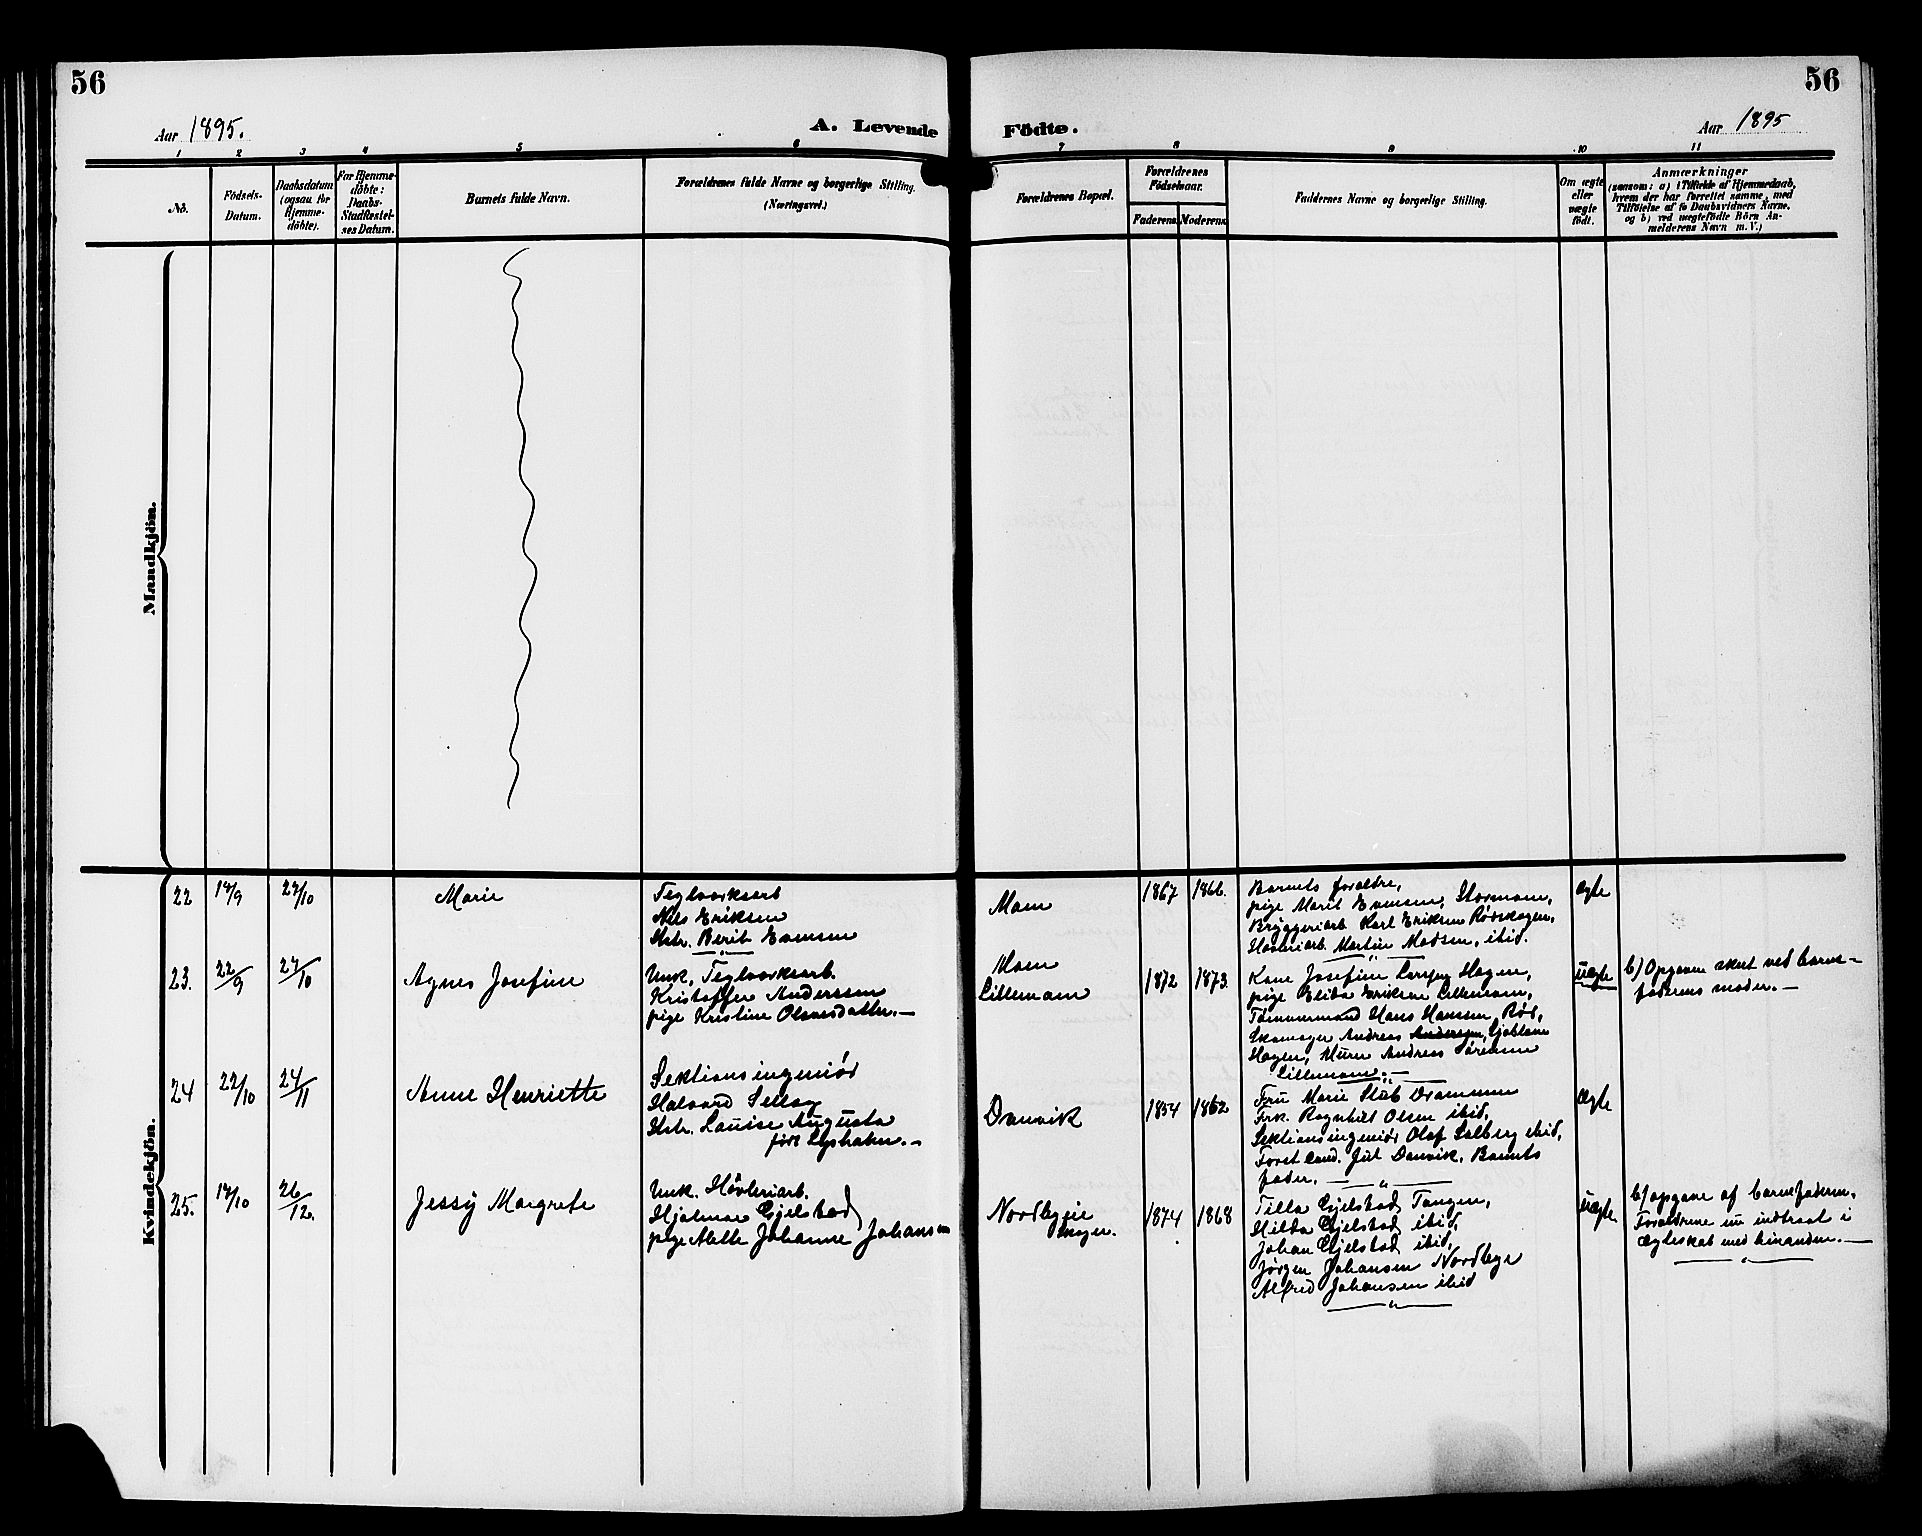 56
56
Aar 1895.
A. Levende
Födte.
Aar 1895
1 2 3 4 5 6 7 8 9 10 11
No.
Födsels-
Datum.
Daabsdatum
(ogsaa for
Hjemme-
döbte).
For Hjemme-
döbte:
Daabs-
Stadfæstel-
ses Datum.
Barnets fulde Navn.
Forældrenes fulde Navne og borgerlige Stilling.
(Næringsvei.)
Forældrenes Bopæl.
Forældrenes
Födselsaar.
Faderens.
Moderens.
Faddernes Navne og borgerlige Stilling.
Om ægte
eller
uægte
födt.
Anmærkninger
(saasom: a) i Tilfælde af Hjemmedaab,
hvem der har forrettet samme, med
Tilföielse af to Daabsvidners Navne,
og b) ved uægtefödte Börn An-
melderens Navn m. V.)
Mandkjön.
Kvindekjön.
22
14/9
27/10
Marie
Teglverksarb
Nils Eriksen
Hstr. Berit Evensen
Moen
1867
1866.
Barnets forældre,
pige Marit Evensen, Stormoen,
Bryggeriarb Karl Eriksen Rødskogen,
Høvleriarb. Martin Madsen, ibid.
ægte
23.
22/9
27/10
Agnes Josefine
Unk. Teglverksarb.
Kristoffer Anderssen
pige Kristine Olavesdatter.—
Moen
Lillemoen
1872
1873.
Kone Josefine Hagen,
pige Elida Eriksen Lillemoen,
Tømmermand Hans Hansen, Rød,
Skomager Andreas Andersen,
Hagen, Murer Andreas Sørensen
Lillemoen.—
uægte
b) Opgaven skeet ved barne-
faderens moder.—
24
22/10
24/11
Anne Henriette
Sektionsingeniør
Halvard
Hstr. Lauise Augusta
født Lysholm.—
Danvik
1854
1862
Fru Marie Stub Drammen
Frk. Ragnhild Olsen ibid,
Sektionsingeniør Olaf Solberg ibid,
Forst Cand. Jul Danvik, Barnets
fader.—
ægte
25.
14/10
26/12.
Jessy Margrete
Unk. Høvleriarb.
Hjalmar Gjelstad
pige Mette Johanne Johansen
Nordbyeie
skogen.
1874
1868
Tilla Gjelstad Tangen,
Hilda Gjelstad ibid,
Johan Gjelstad ibid,
Jørgen Johansen Nordbye
Alfred Johansen ibid
uægte
b) opgave af barnefaderen.
Forældrene nu indtraat i
Ægteskab med hinanden.—